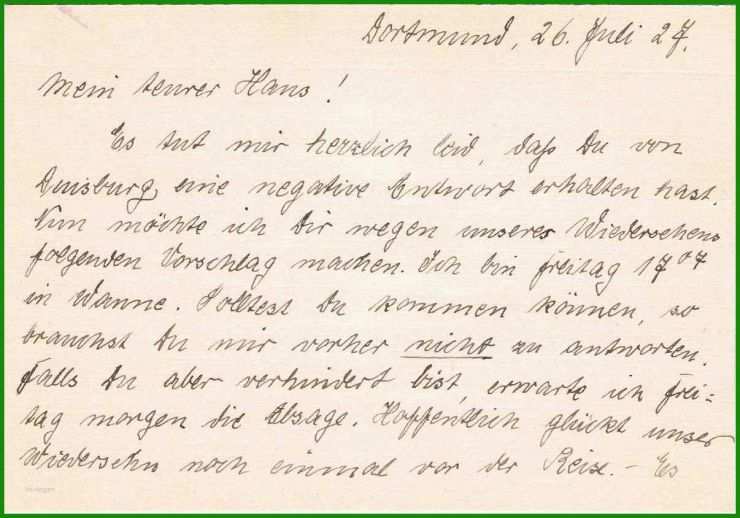 Dortmund, 26. Juli 27.
Mein teurer Hans!
Es tut mir herzlich leid, daß Du von
Duisburg eine negative Antwort erhalten hast.
Nun möchte ich Dir wegen unseres Wiedersehens
folgenden Vorschlag machen. Ich bin Freitag 17⁰⁷
in Wanne. Solltest Du kommen können, so
brauchst Du mir vorher nicht zu antworten.
Falls Du aber verhindert bist, erwarte ich Frei=
tag morgen die Absage. Hoffentlich glückt unser
Wiedersehn noch einmal vor der Reise. – Es